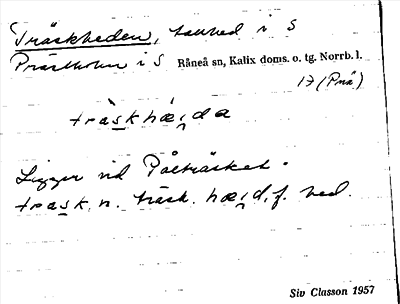 Träskheden, tallhed i S
Prästholm i S Råneå sn, Kalix doms. o. tg. Norrb. l.
17 (Pnä)
träskhæda
Ligger vid Pålträsket.
träsk, n. träsk. hæd, f. hed.
Siv Classon 1957